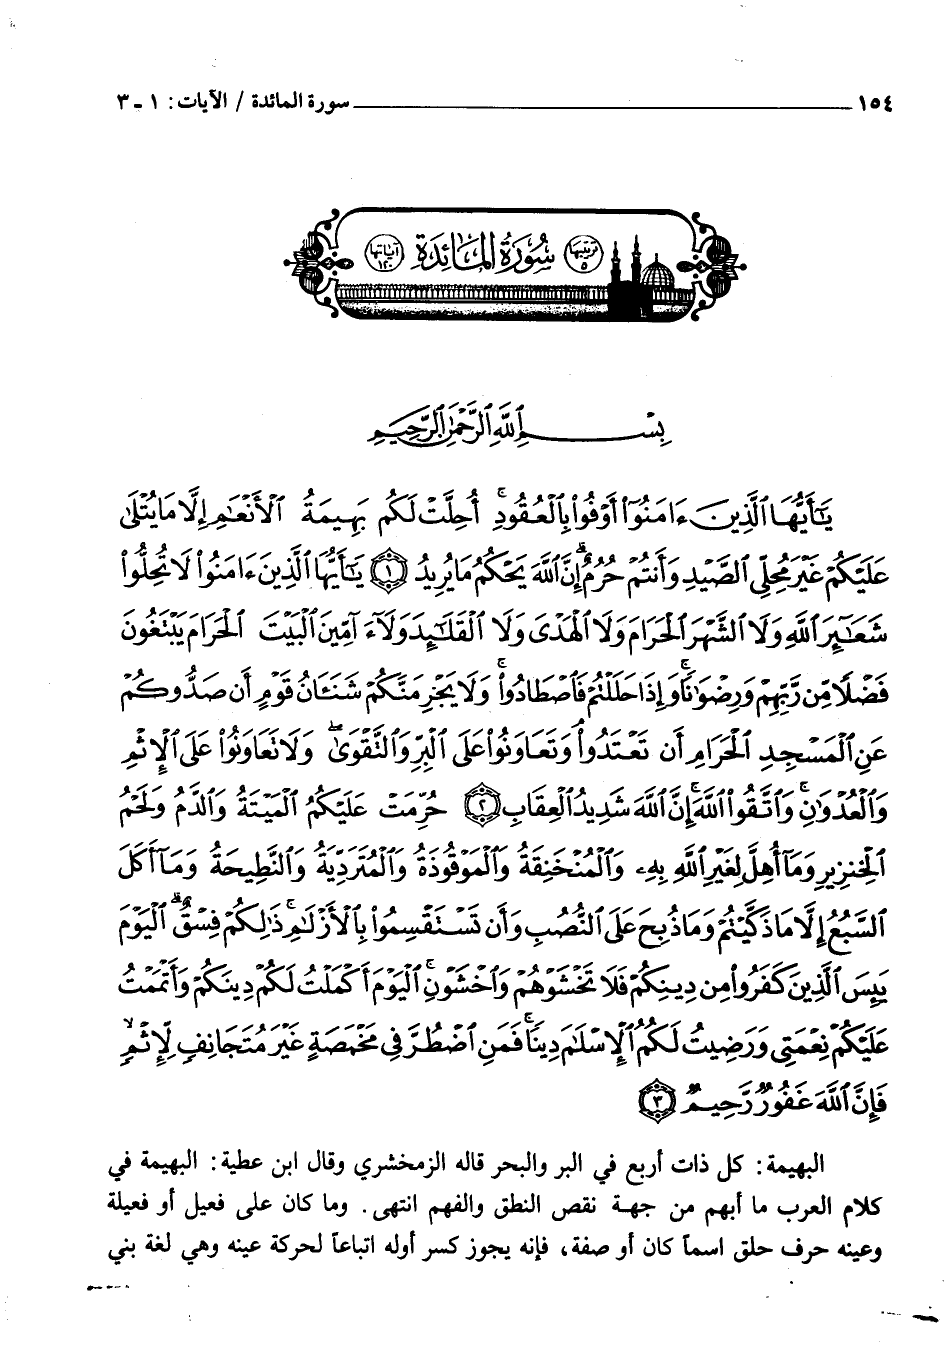 ١٥٤ سورة المائدة / الآيات: ١ - ٣
ترتيبها ٥ سُورَةُ المَائِدَة آياتها ١٢٠
بِسْمِ ٱللَّهِ ٱلرَّحْمَٰنِ ٱلرَّحِيمِ
يَٰٓأَيُّهَا ٱلَّذِينَ ءَامَنُوٓا۟ أَوْفُوا۟ بِٱلْعُقُودِ ۚ أُحِلَّتْ لَكُم بَهِيمَةُ ٱلْأَنْعَٰمِ إِلَّا مَا يُتْلَىٰ
عَلَيْكُمْ غَيْرَ مُحِلِّى ٱلصَّيْدِ وَأَنتُمْ حُرُمٌ ۗ إِنَّ ٱللَّهَ يَحْكُمُ مَا يُرِيدُ ١ يَٰٓأَيُّهَا ٱلَّذِينَ ءَامَنُوا۟ لَا تُحِلُّوا۟
شَعَٰٓئِرَ ٱللَّهِ وَلَا ٱلشَّهْرَ ٱلْحَرَامَ وَلَا ٱلْهَدْىَ وَلَا ٱلْقَلَٰٓئِدَ وَلَآ ءَآمِّينَ ٱلْبَيْتَ ٱلْحَرَامَ يَبْتَغُونَ
فَضْلًا مِّن رَّبِّهِمْ وَرِضْوَٰنًا ۚ وَإِذَا حَلَلْتُمْ فَٱصْطَادُوا۟ ۚ وَلَا يَجْرِمَنَّكُمْ شَنَـَٔانُ قَوْمٍ أَن صَدُّوكُمْ
عَنِ ٱلْمَسْجِدِ ٱلْحَرَامِ أَن تَعْتَدُوا۟ ۘ وَتَعَاوَنُوا۟ عَلَى ٱلْبِرِّ وَٱلتَّقْوَىٰ ۖ وَلَا تَعَاوَنُوا۟ عَلَى ٱلْإِثْمِ
وَٱلْعُدْوَٰنِ ۚ وَٱتَّقُوا۟ ٱللَّهَ ۖ إِنَّ ٱللَّهَ شَدِيدُ ٱلْعِقَابِ ٢ حُرِّمَتْ عَلَيْكُمُ ٱلْمَيْتَةُ وَٱلدَّمُ وَلَحْمُ
ٱلْخِنزِيرِ وَمَآ أُهِلَّ لِغَيْرِ ٱللَّهِ بِهِۦ وَٱلْمُنْخَنِقَةُ وَٱلْمَوْقُوذَةُ وَٱلْمُتَرَدِّيَةُ وَٱلنَّطِيحَةُ وَمَآ أَكَلَ
ٱلسَّبُعُ إِلَّا مَا ذَكَّيْتُمْ وَمَا ذُبِحَ عَلَى ٱلنُّصُبِ وَأَن تَسْتَقْسِمُوا۟ بِٱلْأَزْلَٰمِ ۚ ذَٰلِكُمْ فِسْقٌ ۗ ٱلْيَوْمَ
يَئِسَ ٱلَّذِينَ كَفَرُوا۟ مِن دِينِكُمْ فَلَا تَخْشَوْهُمْ وَٱخْشَوْنِ ۚ ٱلْيَوْمَ أَكْمَلْتُ لَكُمْ دِينَكُمْ وَأَتْمَمْتُ
عَلَيْكُمْ نِعْمَتِى وَرَضِيتُ لَكُمُ ٱلْإِسْلَٰمَ دِينًا ۚ فَمَنِ ٱضْطُرَّ فِى مَخْمَصَةٍ غَيْرَ مُتَجَانِفٍ لِّإِثْمٍ ۙ
فَإِنَّ ٱللَّهَ غَفُورٌ رَّحِيمٌ ٣
البهيمة: كل ذات أربع في البر والبحر قاله الزمخشري وقال ابن عطية: البهيمة في
كلام العرب ما أبهم من جهة نقص النطق والفهم انتهى. وما كان على فعيل أو فعيلة
وعينه حرف حلق اسماً كان أو صفة، فإنه يجوز كسر أوله اتباعاً لحركة عينه وهي لغة بني